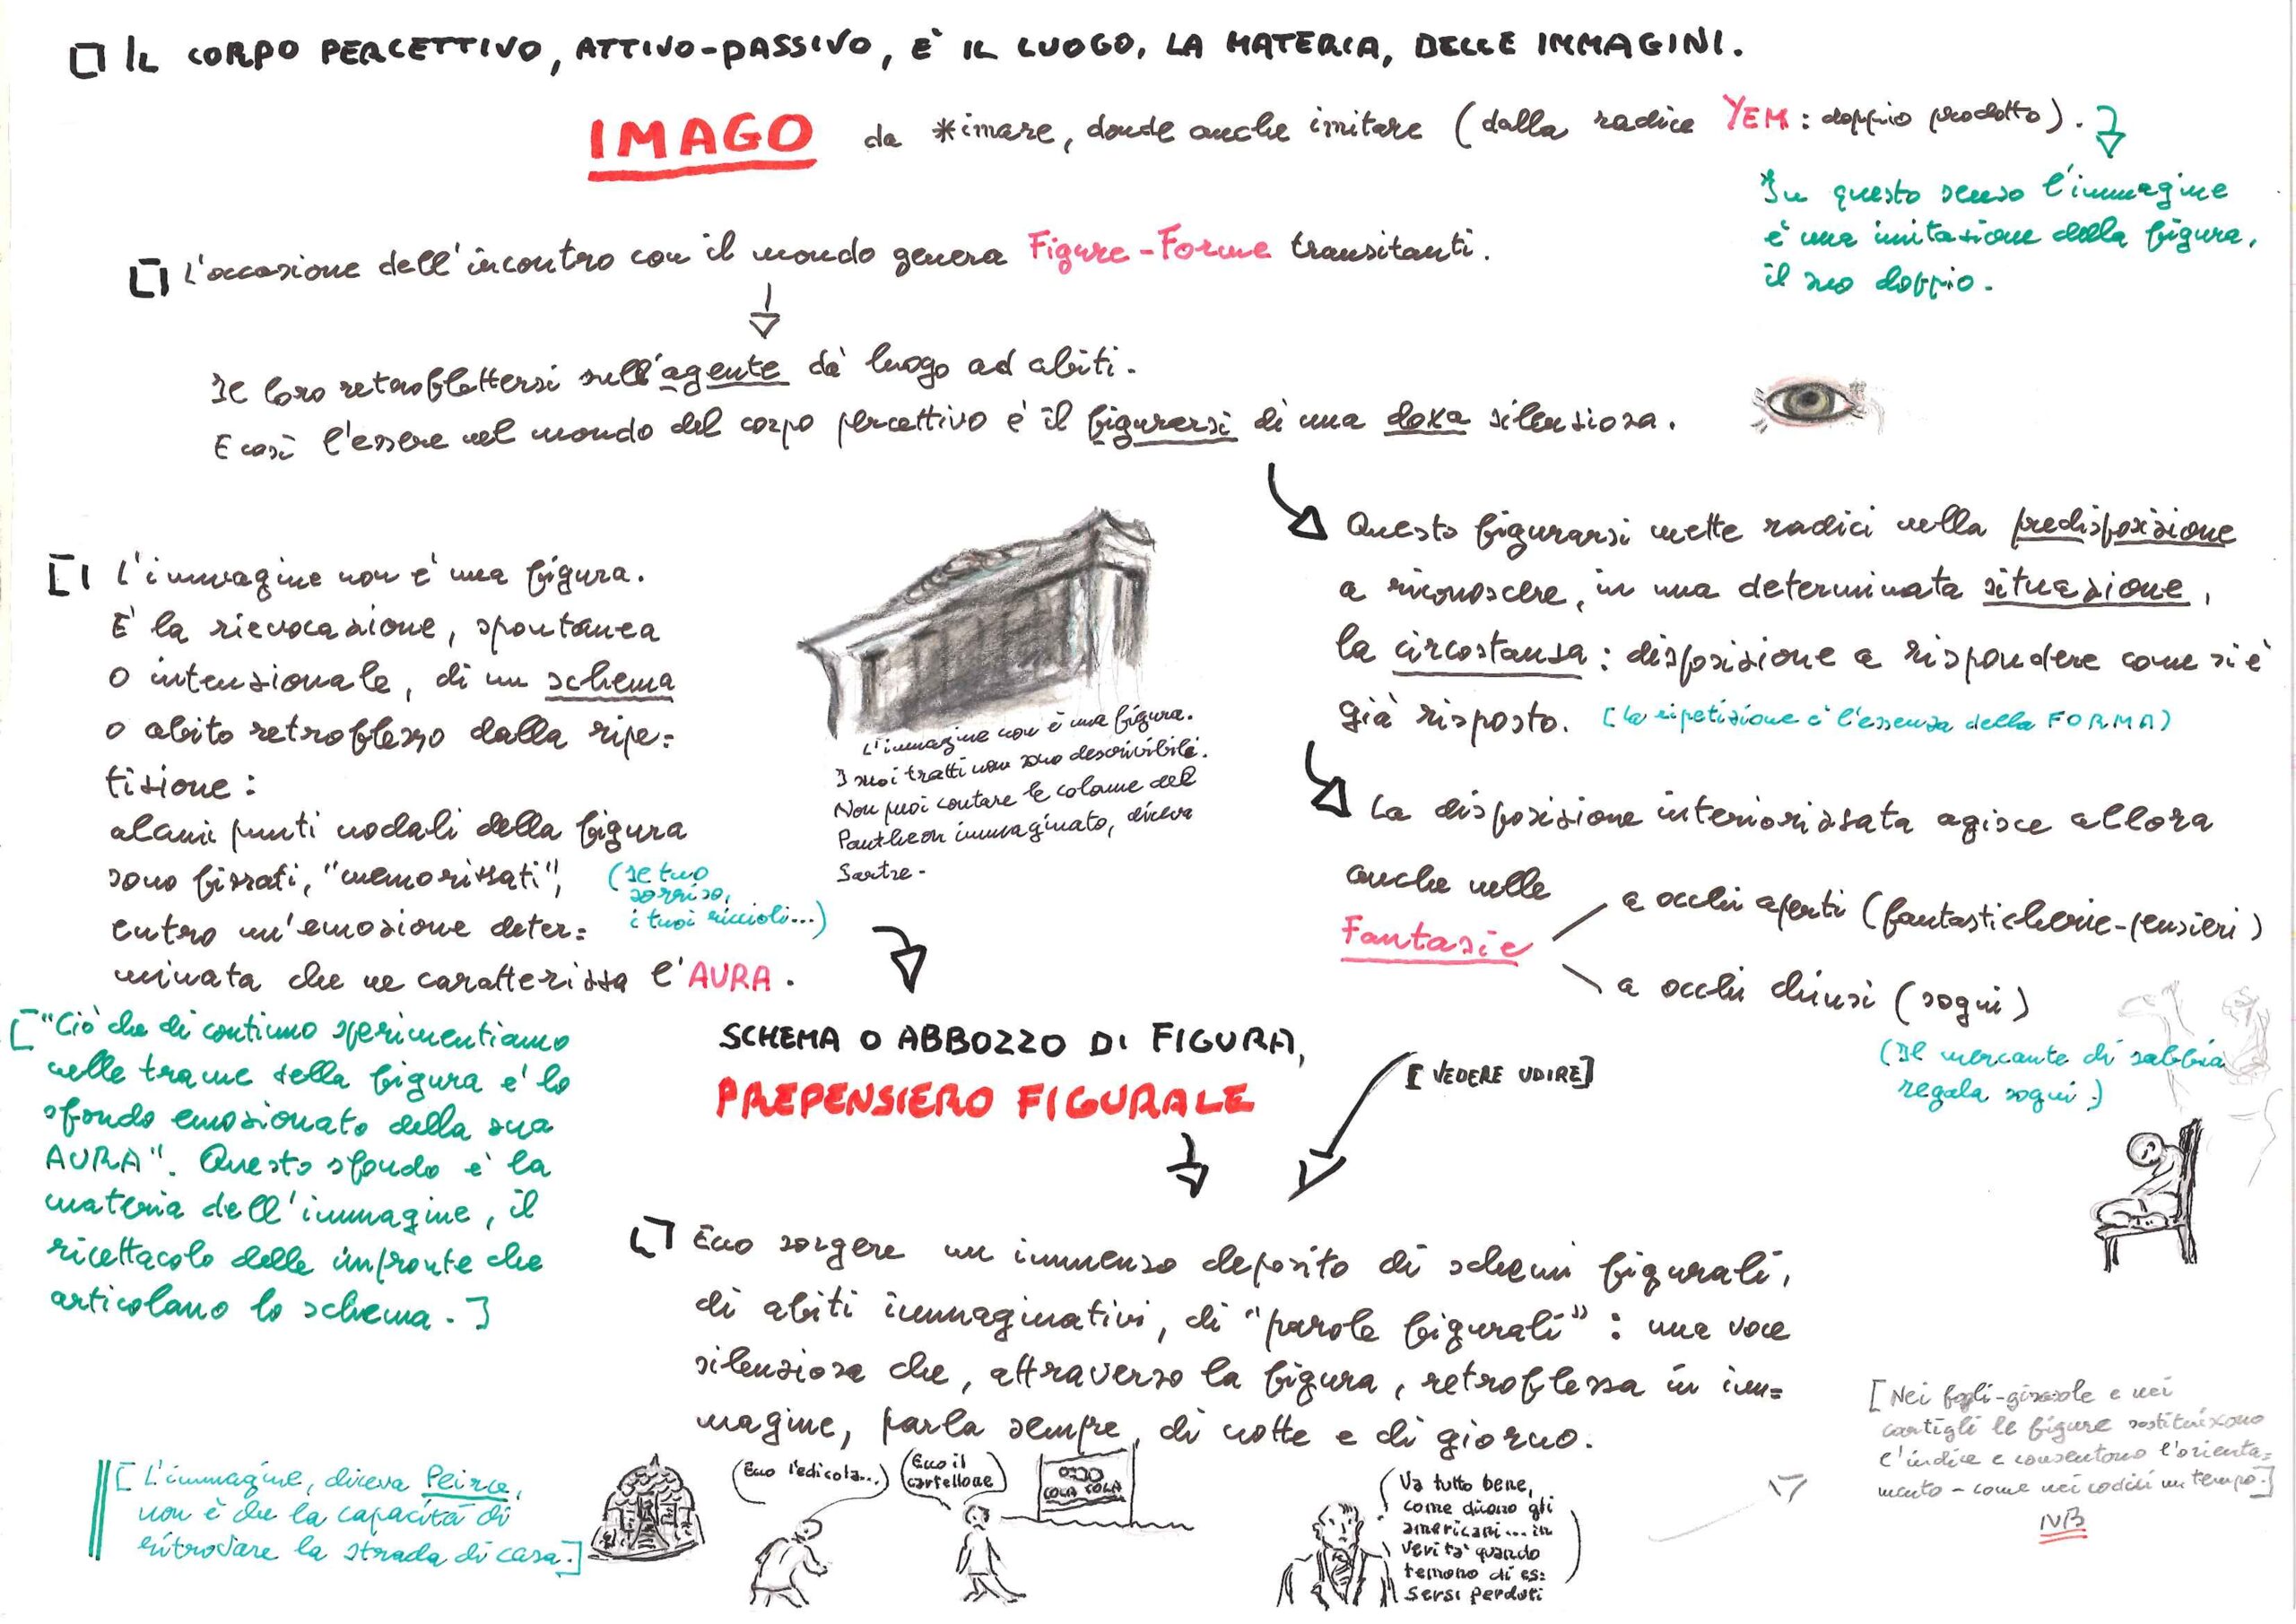 IL CORPO PERCETTIVO, ATTIVO-PASSIVO, E' IL LUOGO, LA MATERIA, DELLE IMMAGINI.
IMAGO da *imare, donde anche imitare (dalla radice YEM: doppio prodotto).
In questo senso l'immagine
è una imitazione della figura,
il suo doppio.
L'occasione dell'incontro con il mondo genera Figure-Forme transitanti.
Il loro retroflettersi sull'agente dà luogo ad abiti.
E così l'essere nel mondo del corpo percettivo è il figurarsi di una doxa silenziosa.
Questo figurarsi mette radici nella predisposizione
a riconoscere, in una determinata situazione,
la circostanza: disposizione a rispondere come si è
già risposto. [la ripetizione è l'essenza della FORMA)
La disposizione interiorizzata agisce allora
anche nelle
Fantasie
a occhi aperti (fantasticherie-pensieri)
a occhi chiusi (sogni)
(Il mercante di sabbia
regala sogni.)
L'immagine non è una figura.
E' la rievocazione, spontanea
o intenzionale, di uno schema
o abito retroflesso dalla ripe=
tizione:
alcuni punti nodali della figura
sono fissati, "memorizzati",
entro un'emozione deter=
minata che ne caratterizza l'AURA.
(se tuo
sorriso,
i tuoi riccioli...)
L'immagine non è una figura.
I suoi tratti non sono descrivibili.
Non puoi contare le colonne del
Pantheon immaginato, diceva
Sartre.
["Ciò che di continuo sperimentiamo
nelle trame della figura è lo
sfondo emozionato della sua
AURA". Questo sfondo è la
materia dell'immagine, il
ricettacolo delle impronte che
articolano lo schema.]
SCHEMA O ABBOZZO DI FIGURA,
PREPENSIERO FIGURALE
[VEDERE UDIRE]
Ecco sorgere un immenso deposito di schemi figurali,
di abiti immaginativi, di "parole figurali": una voce
silenziosa che, attraverso la figura, retroflessa in im=
magine, parla sempre, di notte e di giorno.
[L'immagine, diceva Peirce,
non è che la capacità di
ritrovare la strada di casa.]
Ecco l'edicola...
Ecco il
cartellone
COCA COLA
Va tutto bene,
come dicono gli
americani... in
verità quando
temono di es=
sersi perduti
[Nei fogli-girasole e nei
cartigli le figure sostituiscono
l'indice e consentono l'orienta=
mento - come nei codici un tempo.]
NB